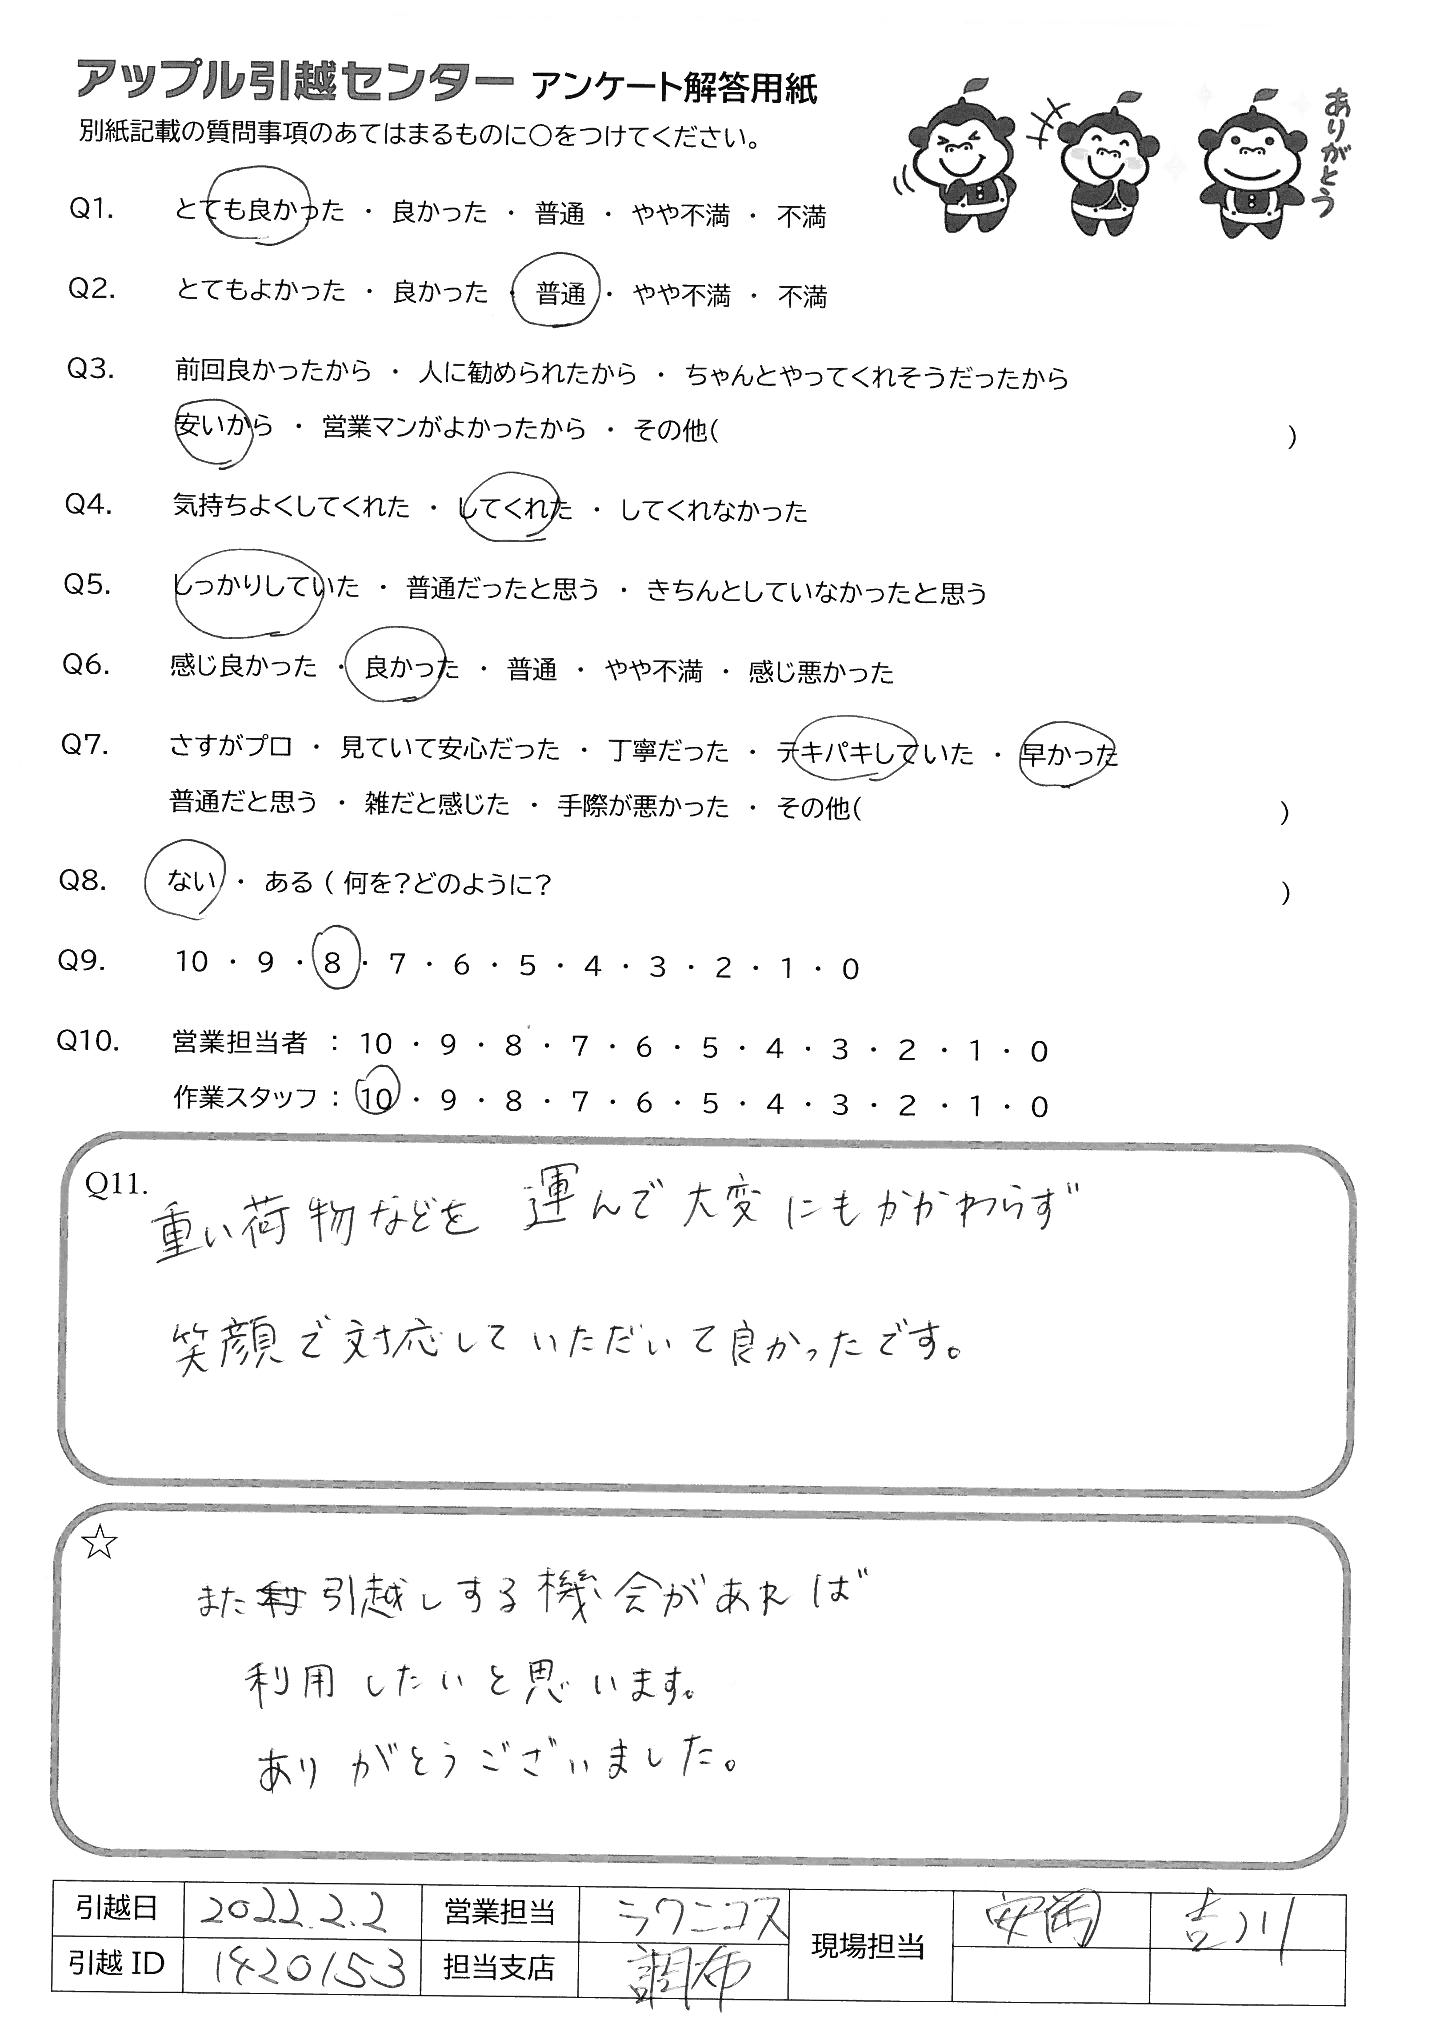 アップル引越センター アンケート解答用紙
別紙記載の質問事項のあてはまるものに○をつけてください。
ありがとう
Q1. とても良かった ・ 良かった ・ 普通 ・ やや不満 ・ 不満
Q2. とてもよかった ・ 良かった ・ 普通 ・ やや不満 ・ 不満
Q3. 前回良かったから ・ 人に勧められたから ・ ちゃんとやってくれそうだったから
安いから ・ 営業マンがよかったから ・ その他( )
Q4. 気持ちよくしてくれた ・ してくれた ・ してくれなかった
Q5. しっかりしていた ・ 普通だったと思う ・ きちんとしていなかったと思う
Q6. 感じ良かった ・ 良かった ・ 普通 ・ やや不満 ・ 感じ悪かった
Q7. さすがプロ ・ 見ていて安心だった ・ 丁寧だった ・ テキパキしていた ・ 早かった
普通だと思う ・ 雑だと感じた ・ 手際が悪かった ・ その他( )
Q8. ない ・ ある ( 何を?どのように? )
Q9. 10 ・ 9 ・ 8 ・ 7 ・ 6 ・ 5 ・ 4 ・ 3 ・ 2 ・ 1 ・ 0
Q10. 営業担当者 : 10 ・ 9 ・ 8 ・ 7 ・ 6 ・ 5 ・ 4 ・ 3 ・ 2 ・ 1 ・ 0
作業スタッフ : 10 ・ 9 ・ 8 ・ 7 ・ 6 ・ 5 ・ 4 ・ 3 ・ 2 ・ 1 ・ 0
Q11.
重い荷物などを運んで大変にもかかわらず
笑顔で対応していただいて良かったです。
☆
また引越しする機会があれば
利用したいと思います。
ありがとうございました。
引越日 2022.2.2 営業担当 ラクニコス 現場担当 安岡 吉川
引越ID 1420153 担当支店 調布